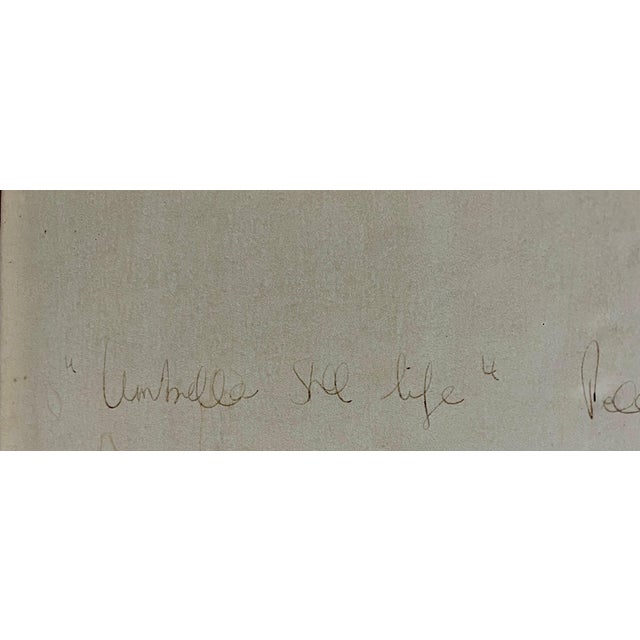 "Umbrella still life"